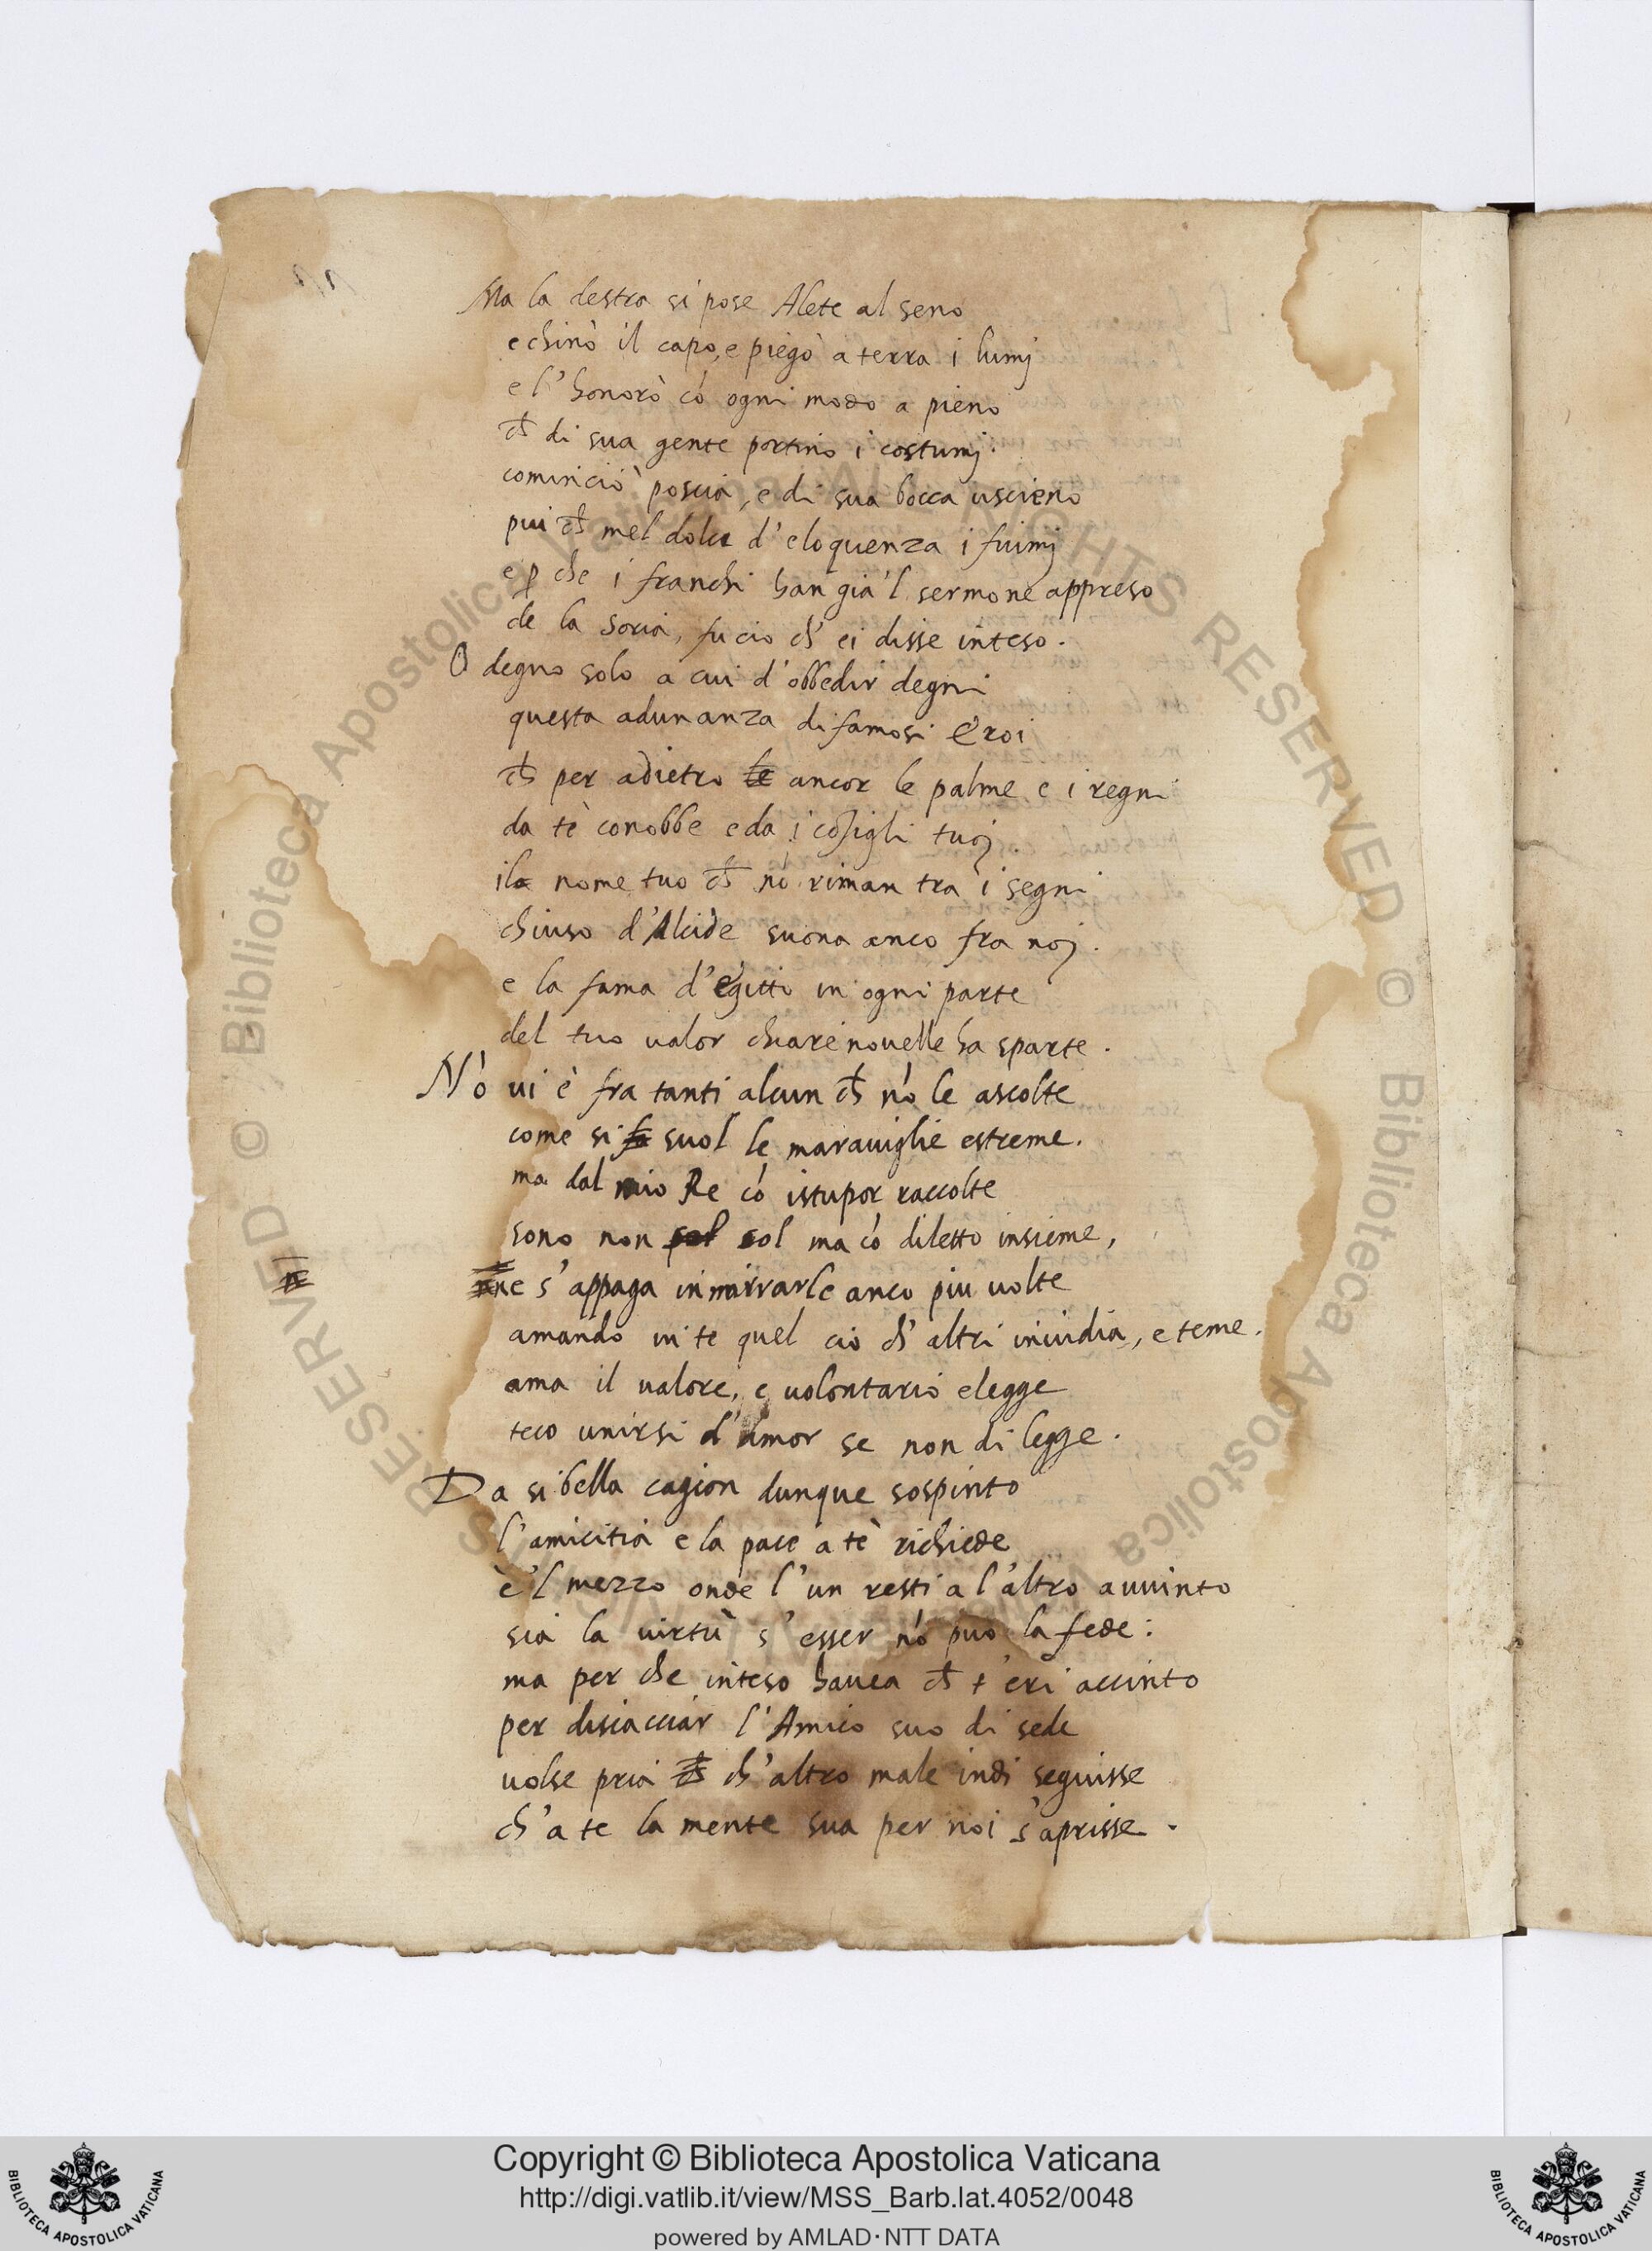 Ma la destra si pose Alete al seno
e chinò il capo, e piegò a terra i lumj
e l'honorò cō ogni modo a pieno
ch̄ di sua gente portino i costumj.
cominciò poscia, e di sua bocca uscieno
piu ch̄ mel dolci d'eloquenza i fiumj
e ꝑ che i franchi han già'l sermone appreso
de la Soria, fu cio ch' ei disse inteso.
O degno solo a cui d'obbedir degni
questa adunanza di famosi Eroi
ch̄ per adietro le ancor le palme e i regni
da tè conobbe e da i cōsigli tuoj
il nome tuo ch̄ nō riman tra i segni
chiuso d'Alcide suona anco fra noj.
e la fama d'egitto in ogni parte
del tuo valor chiare novelle ha sparte.
Nō ui è fra tanti alcun ch̄ nō le ascolte
come si fa suol le marauiglie estreme.
ma dal mio Re cō istupor raccolte
sono non sol sol ma cō diletto insieme,
ne s'appaga in narrarle anco piu uolte
amando in te quel ciò ch' altri inuidia, e teme.
ama il valore, e uolontario elegge
teco unirsi d'Amor se non di legge.
Da si bella cagion dunque sospinto
l'amicitia e la pace a tè richiede
e'l mezzo onde l'un resti a l'altro auuinto
sia la uirtù s'esser nō può la fede:
ma per che inteso hauea ch̄ t'eri accinto
per discacciar l'Amico suo di sede
uolse pria ch̄ ch'altro male indi seguisse
ch'a te la mente sua per noi s'aprisse.
Copyright © Biblioteca Apostolica Vaticana
http://digi.vatlib.it/view/MSS_Barb.lat.4052/0048
powered by AMLAD·NTT DATA
BIBLIOTECA APOSTOLICA VATICANA
BIBLIOTECA APOSTOLICA VATICANA